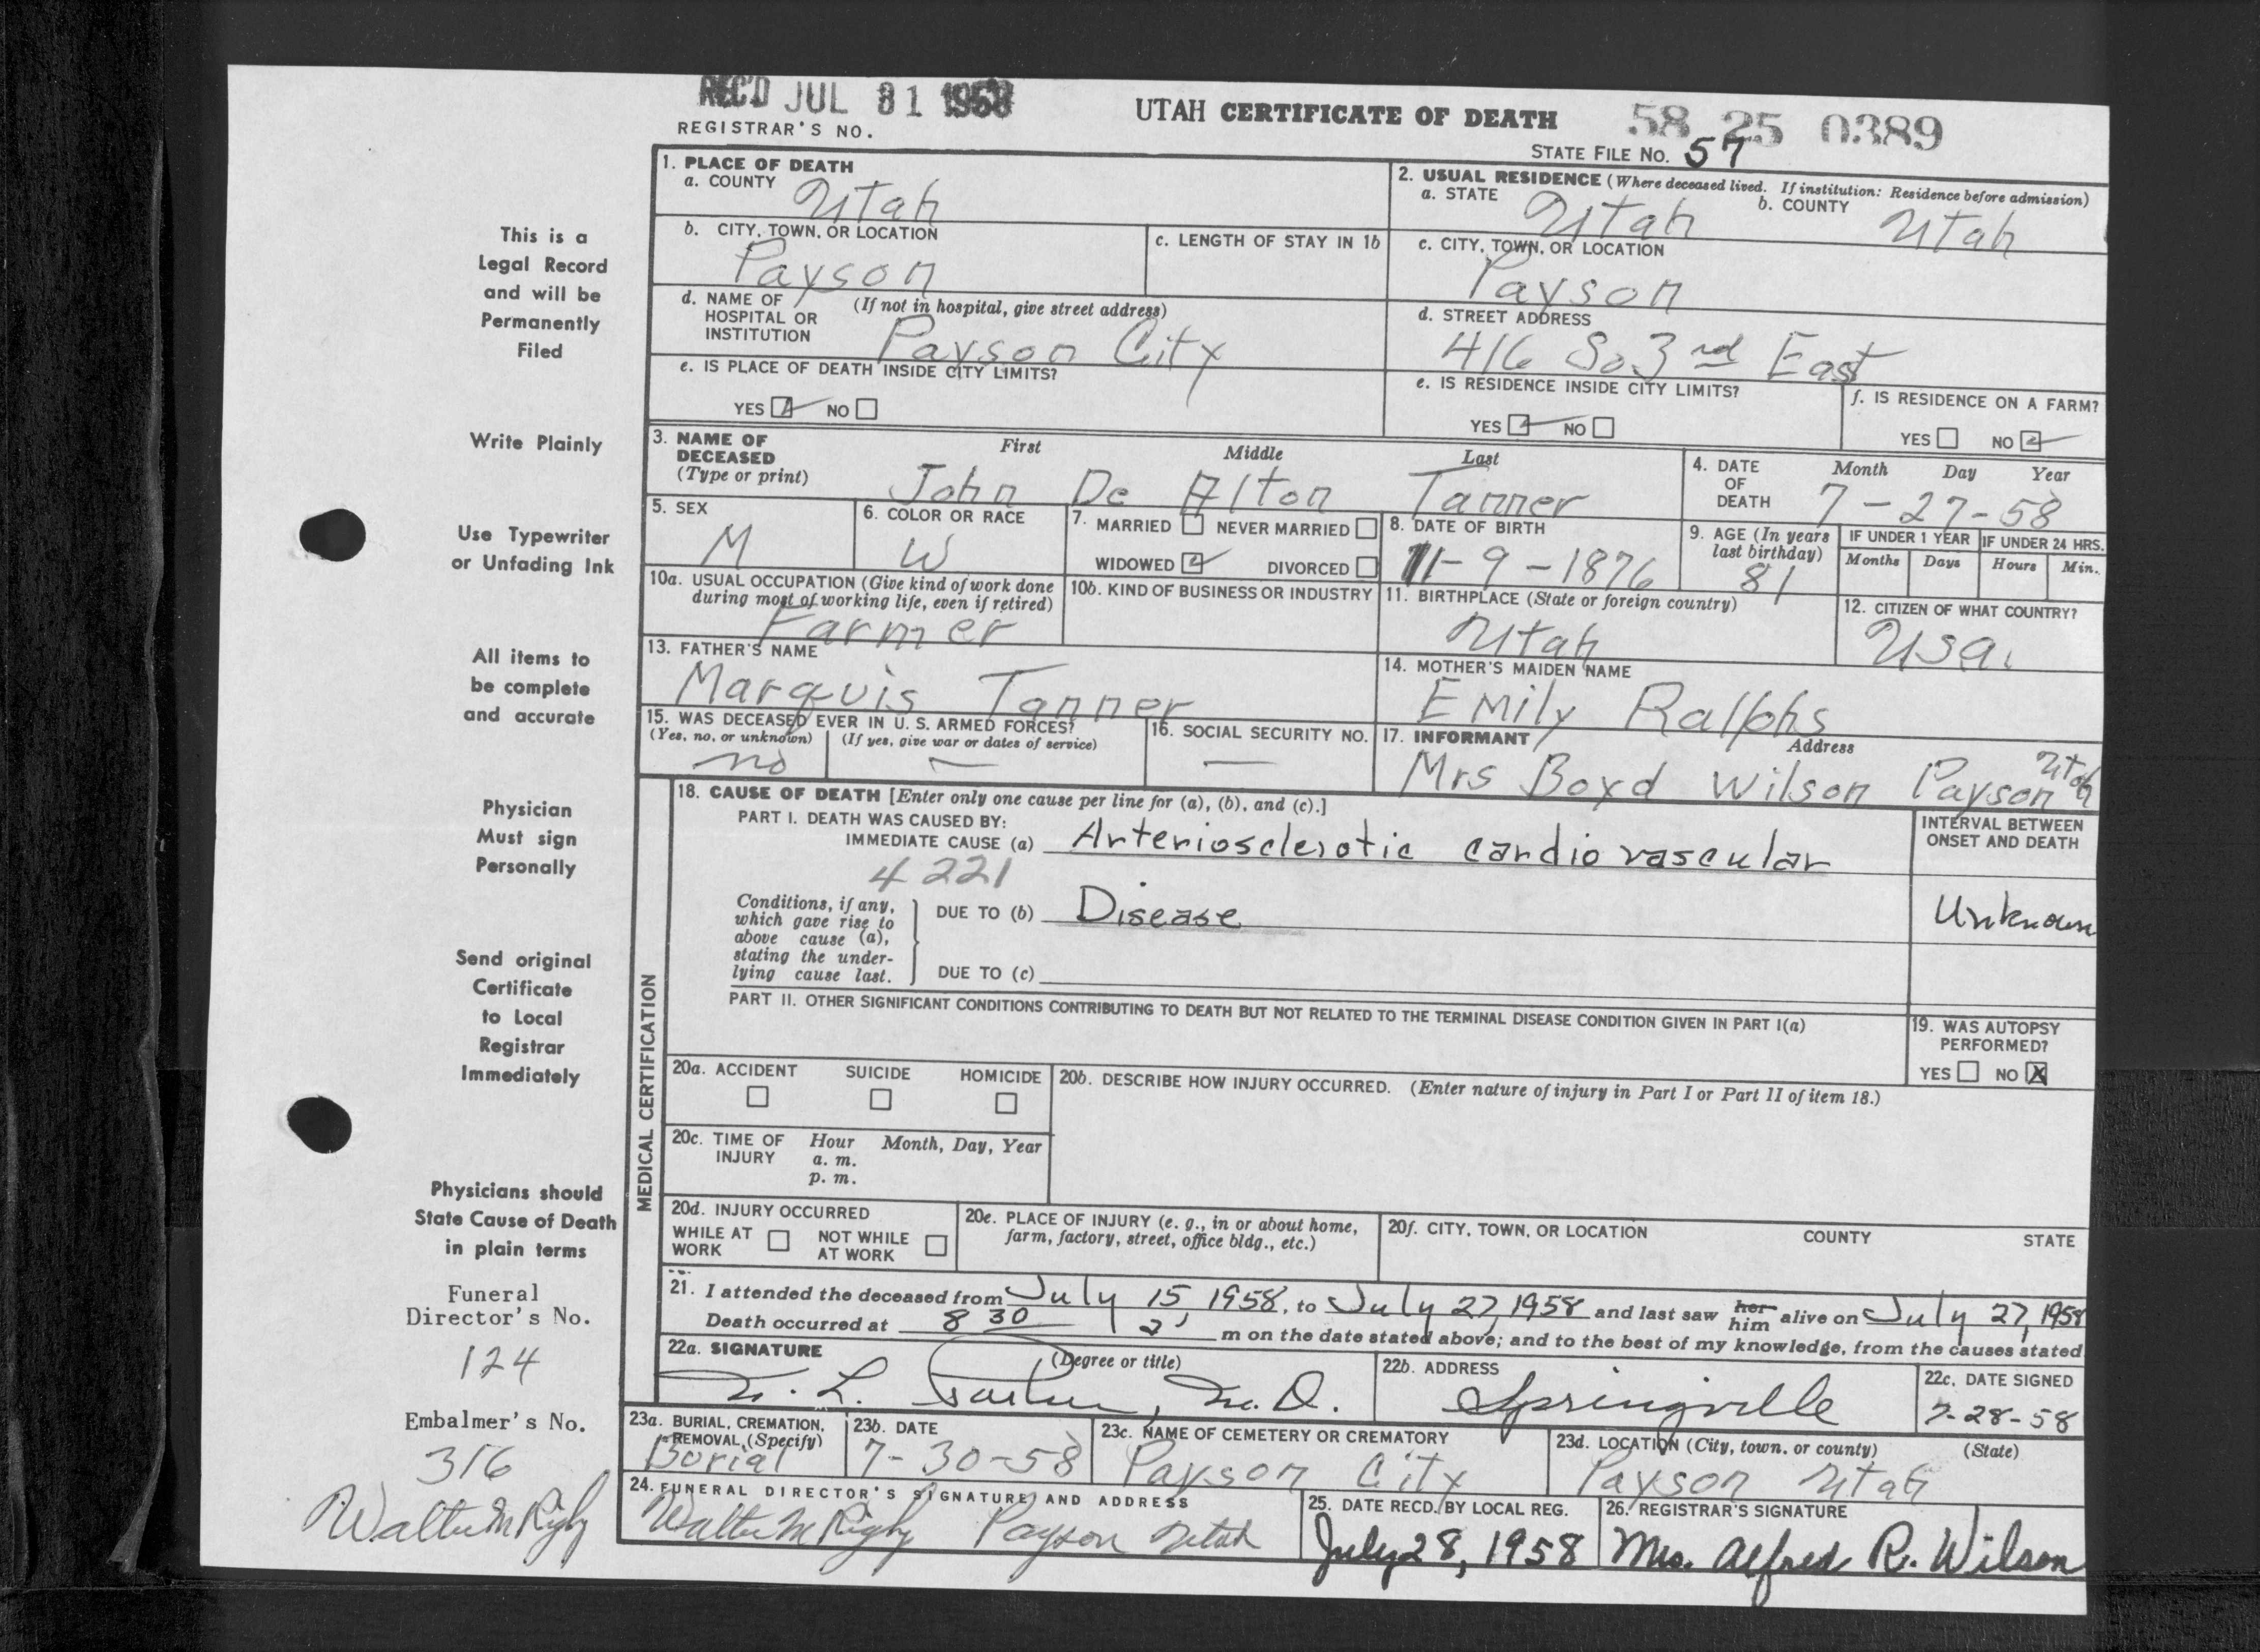 REC'D JUL 31 1958
UTAH CERTIFICATE OF DEATH
58 25 0389
REGISTRAR'S NO.
STATE FILE NO. 57
This is a
Legal Record
and will be
Permanently
Filed
Write Plainly
Use Typewriter
or Unfading Ink
All items to
be complete
and accurate
Physician
Must sign
Personally
Send original
Certificate
to Local
Registrar
Immediately
Physicians should
State Cause of Death
in plain terms
Funeral
Director's No.
124
Embalmer's No.
316
Walter M Rigby
1. PLACE OF DEATH
a. COUNTY Utah
b. CITY, TOWN, OR LOCATION
Payson
c. LENGTH OF STAY IN 1b
d. NAME OF (If not in hospital, give street address)
HOSPITAL OR
INSTITUTION Payson City
e. IS PLACE OF DEATH INSIDE CITY LIMITS?
YES NO
2. USUAL RESIDENCE (Where deceased lived. If institution: Residence before admission)
a. STATE Utah b. COUNTY Utah
c. CITY, TOWN, OR LOCATION
Payson
d. STREET ADDRESS
416 So. 3rd East
e. IS RESIDENCE INSIDE CITY LIMITS?
YES NO
f. IS RESIDENCE ON A FARM?
YES NO
3. NAME OF
DECEASED
(Type or print)
First Middle Last
John De Alton Tanner
4. DATE
OF
DEATH
Month Day Year
7-27-58
5. SEX
M
6. COLOR OR RACE
W
7. MARRIED NEVER MARRIED
WIDOWED DIVORCED
8. DATE OF BIRTH
11-9-1876
9. AGE (In years
last birthday)
81
IF UNDER 1 YEAR
Months Days
IF UNDER 24 HRS.
Hours Min.
10a. USUAL OCCUPATION (Give kind of work done
during most of working life, even if retired)
Farmer
10b. KIND OF BUSINESS OR INDUSTRY
11. BIRTHPLACE (State or foreign country)
Utah
12. CITIZEN OF WHAT COUNTRY?
USA.
13. FATHER'S NAME
Marquis Tanner
14. MOTHER'S MAIDEN NAME
Emily Ralphs
15. WAS DECEASED EVER IN U. S. ARMED FORCES?
(Yes, no, or unknown) (If yes, give war or dates of service)
no —
16. SOCIAL SECURITY NO.
—
17. INFORMANT Address
Mrs Boyd Wilson Payson Utah
MEDICAL CERTIFICATION
18. CAUSE OF DEATH [Enter only one cause per line for (a), (b), and (c).]
PART I. DEATH WAS CAUSED BY:
IMMEDIATE CAUSE (a) Arteriosclerotic cardio vascular
4221
Conditions, if any,
which gave rise to
above cause (a),
stating the under-
lying cause last.
DUE TO (b) Disease
DUE TO (c)
INTERVAL BETWEEN
ONSET AND DEATH
Unknown
PART II. OTHER SIGNIFICANT CONDITIONS CONTRIBUTING TO DEATH BUT NOT RELATED TO THE TERMINAL DISEASE CONDITION GIVEN IN PART I(a)
19. WAS AUTOPSY
PERFORMED?
YES NO X
20a. ACCIDENT SUICIDE HOMICIDE
20b. DESCRIBE HOW INJURY OCCURRED. (Enter nature of injury in Part I or Part II of item 18.)
20c. TIME OF Hour Month, Day, Year
INJURY a. m.
p. m.
20d. INJURY OCCURRED
WHILE AT NOT WHILE
WORK AT WORK
20e. PLACE OF INJURY (e. g., in or about home,
farm, factory, street, office bldg., etc.)
20f. CITY, TOWN, OR LOCATION COUNTY STATE
21. I attended the deceased from July 15, 1958, to July 27, 1958 and last saw her him alive on July 27, 1958
Death occurred at 8 30 m on the date stated above; and to the best of my knowledge, from the causes stated
22a. SIGNATURE (Degree or title)
L. M.D.
22b. ADDRESS
Springville
22c. DATE SIGNED
7-28-58
23a. BURIAL, CREMATION,
REMOVAL (Specify)
Borial
23b. DATE
7-30-58
23c. NAME OF CEMETERY OR CREMATORY
Payson City
23d. LOCATION (City, town, or county) (State)
Payson Utah
24. FUNERAL DIRECTOR'S SIGNATURE AND ADDRESS
Walter M Rigby Payson Utah
25. DATE RECD. BY LOCAL REG.
July 28, 1958
26. REGISTRAR'S SIGNATURE
Mrs. Alfred R. Wilson